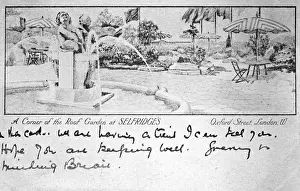 A Corner of the Roof Garden at SELFRIDGES Oxford Street, London, W.
we are having a I can tell you.
Hope You are keeping well.